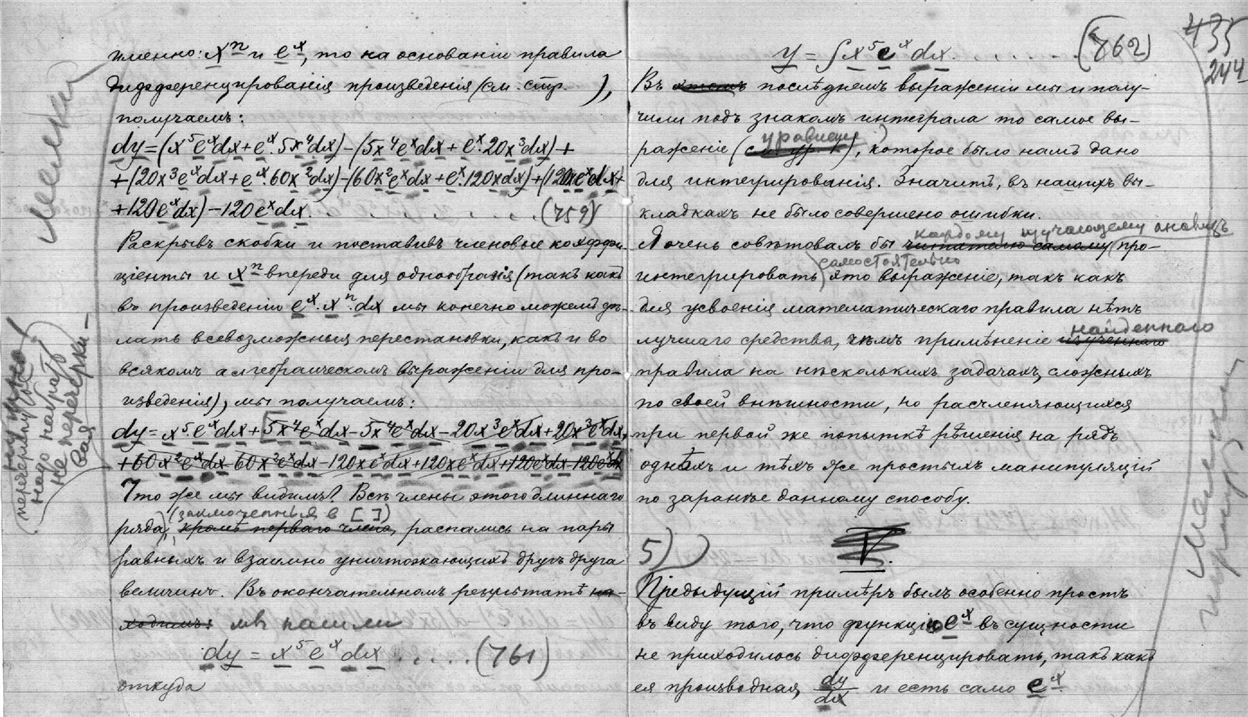 именно: xⁿ и eˣ, то на основаніи правила
дифференцированія произведенія (см. стр.      ),
получаемъ:
dy=(x⁵eˣdx+eˣ.5x⁴dx)−(5x⁴eˣdx+eˣ.20x³dx)+
+(20x³eˣdx+eˣ.60x²dx)−(60x²eˣdx+eˣ.120xdx)+(120xeˣdx+
+120eˣdx)−120eˣdx. . . . . . . . (759)
Раскрывъ скобки и поставивъ членовые коэффи-
ціенты и xⁿ впереди для однообразія (такъ какъ
въ произведеніи eˣ.xⁿ.dx мы конечно можемъ дѣ-
лать всевозможныя перестановки, какъ и во
всякомъ алгебраическомъ выраженіи для про-
изведенія), мы получаемъ:
dy=x⁵eˣdx+[5x⁴eˣdx−5x⁴eˣdx−20x³eˣdx+20x³eˣdx+
+60x²eˣdx−60x²eˣdx−120xeˣdx+120xeˣdx+120eˣdx−120eˣdx
Что же мы видимъ? Всѣ члены этого длиннаго
(заключенныя въ [ ])
ряда, кромѣ перваго члена, распались на пары
равныхъ и взаимно уничтожающихъ другъ друга
величинъ. Въ окончательномъ результатѣ на-
ходимъ: мы нашли
dy = x⁵eˣdx . . . . . (761)
откуда
Мелкий
надо набрать
не перечерки-
вая
y = ∫x⁵eˣdx. . . . . . . (862)
435
244
Въ послѣднемъ выраженіи мы и полу-
чили подъ знакомъ интеграла то самое вы-
раженіе (сравни      ), которое было намъ дано
для интегрированія. Значитъ, въ нашихъ вы-
кладкахъ не было совершено ошибки.
каждому изучающему анализъ
Я очень совѣтовалъ бы читателю самому про-
самостоятельно
интегрировать это выраженіе, такъ какъ
для усвоенія математическаго правила нѣтъ
найденнаго
лучшаго средства, чѣмъ примѣненіе изученнаго
правила на нѣсколькихъ задачахъ, сложныхъ
по своей внѣшности, но расчленяющихся
при первой же попыткѣ рѣшенія на рядъ
однѣхъ и тѣхъ же простыхъ манипуляцій
по заранѣе данному способу.
V.
5)
Предыдущій примѣръ былъ особенно простъ
въ виду того, что функцію eˣ въ сущности
не приходилось дифференцировать, такъ какъ
ея производная dy/dx и есть само eˣ
Мелкий
шрифтъ